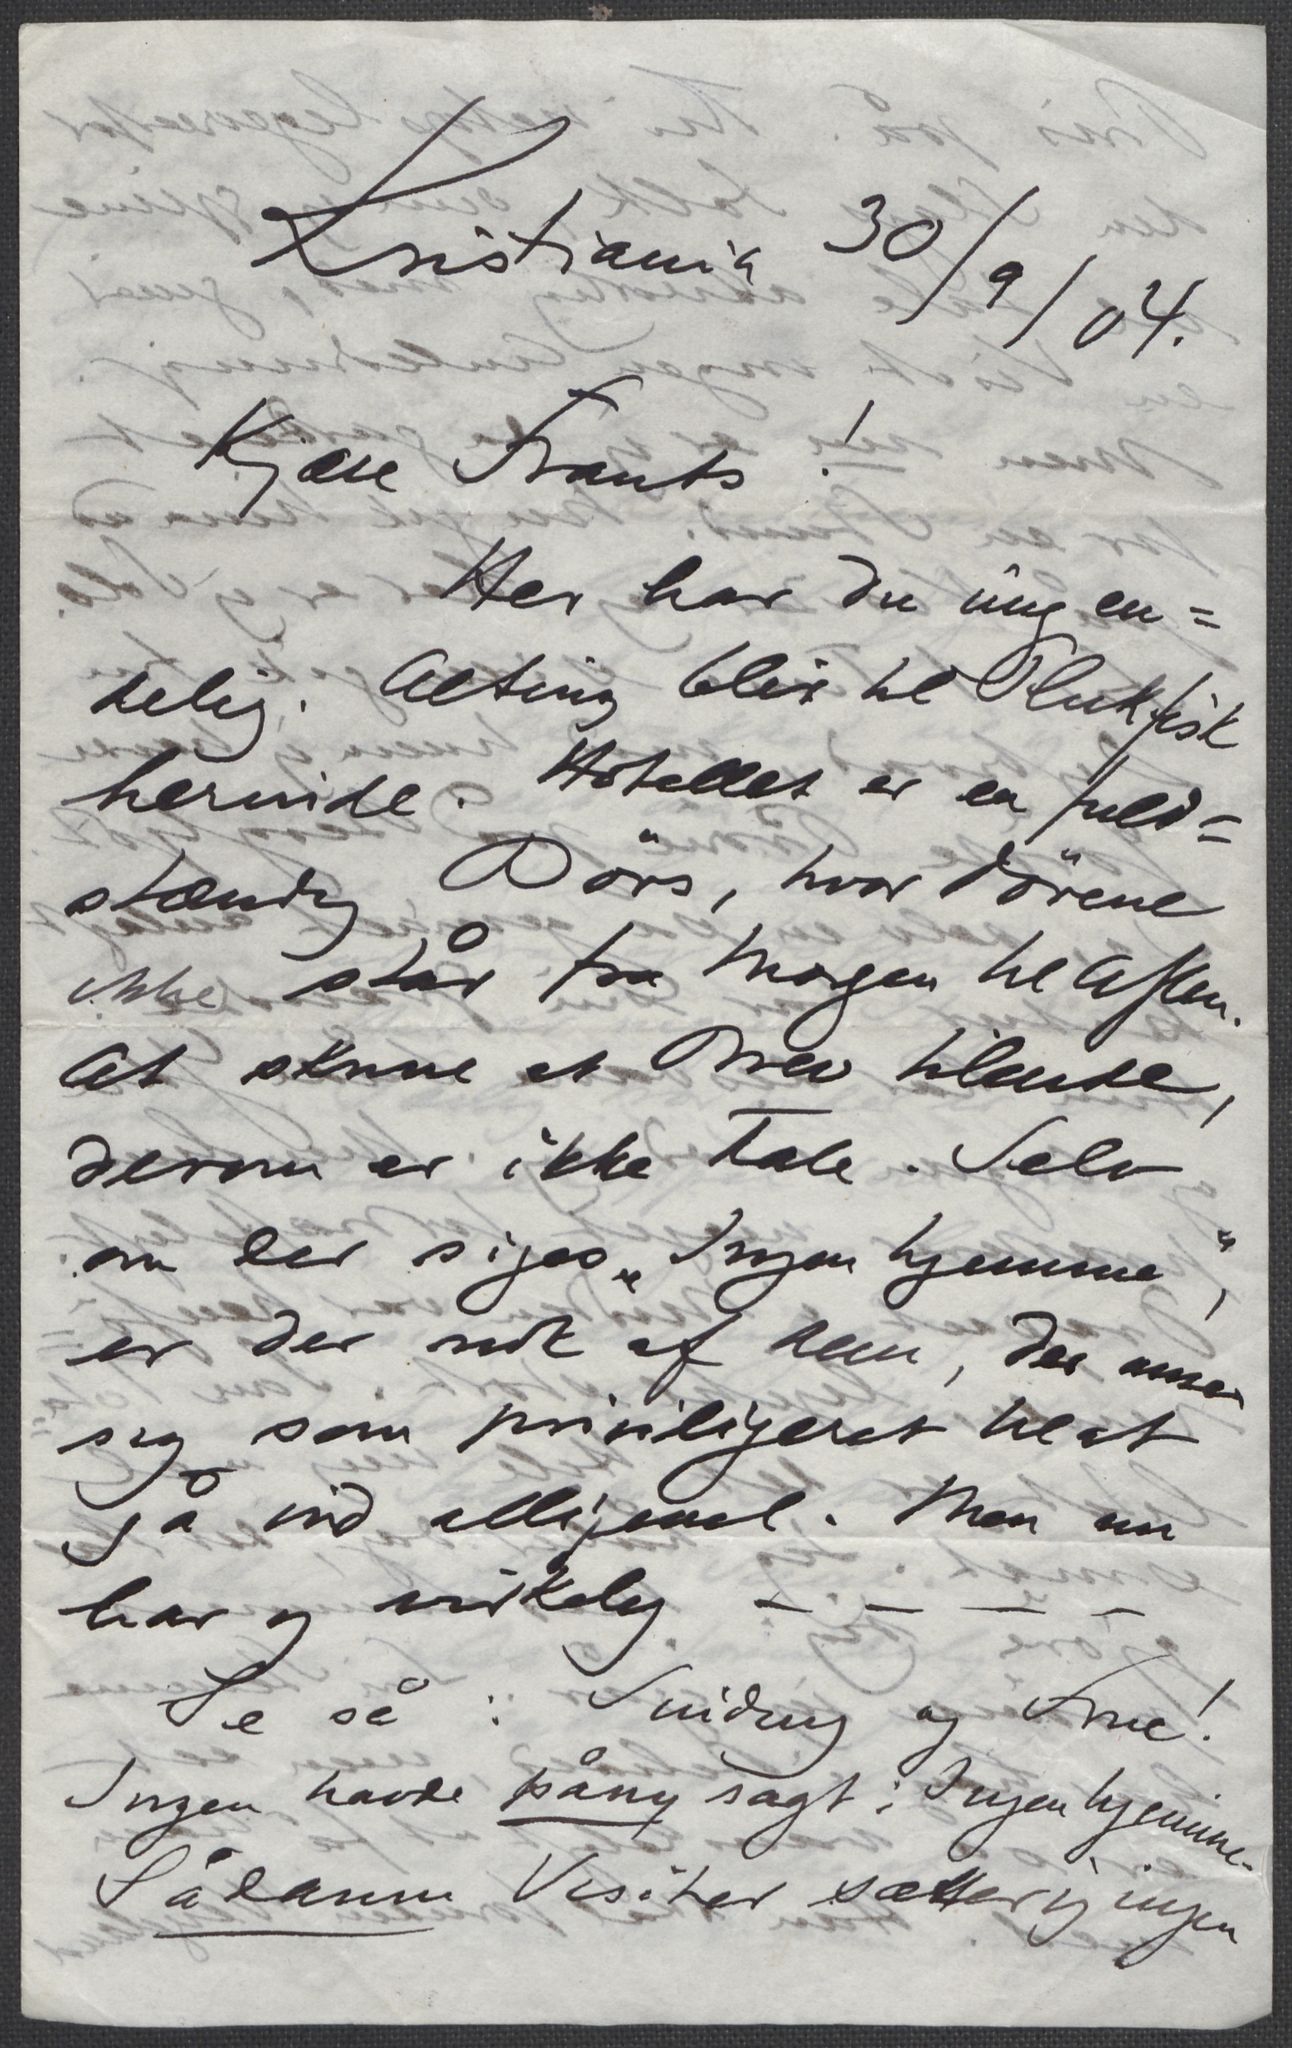 Kristiania 30/9/04.
Kjære Frants!
Her har du mig en=
delig. Alting blir til Plukfisk
herinde. Hotellet er en fuld=
stændig Börs, hvor dörene
ikke står fra Morgen til Aften.
At skrive et Brev tilende,
derom er ikke Tale. Selv
om der siges „Ingen hjemme",
er der nok af dem, der anser
sig som priviligeret til at
gå ind alligevel. Men nu
har jeg virkelig – – – –
Se så: Sinding og Frue!
Ingen havde påny sagt: Ingen hjemme.
Sådanne Visiter sætter jeg ingen